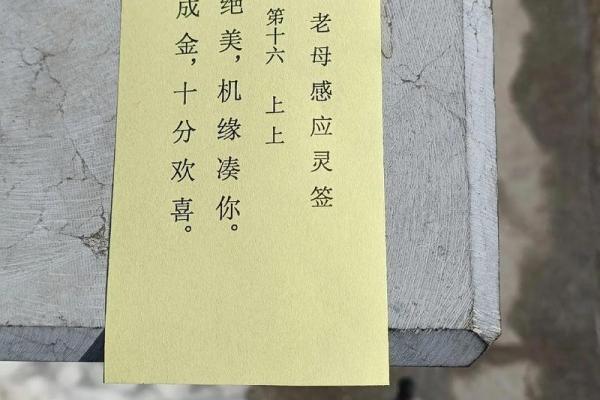 老母感应灵签
第十六 上上
绝美，机缘凑你。
成金，十分欢喜。